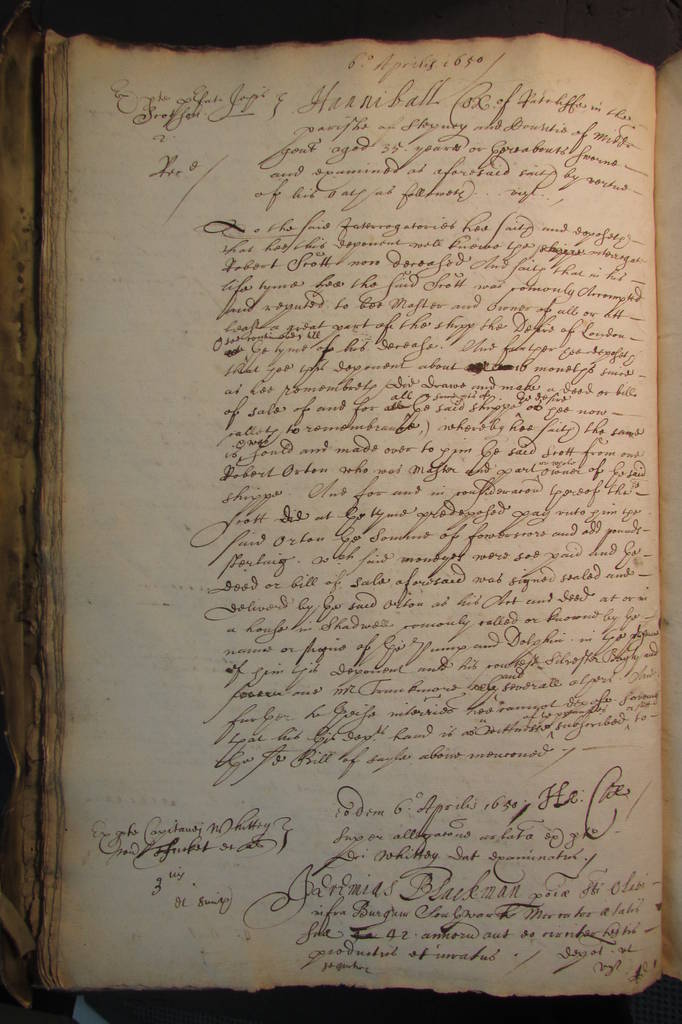 6.o Aprilis 1650
Hanniball Cox of Ratcliffe in the
parishe of Stepney and Countie of Midds
gent aged 35. yeares or thereabouts sworne
and examined as aforesaid saith by vertue
of his oath as followeth. vizt.
To the said Interrogatories hee saith and deposeth
that hee this deponent well knewe the interrogate
Robert Scott now deceased And saith that in his
life tyme hee the said Scott was comonly Accompted
and reputed to bee Master and owner of all or att
least a great part of the shipp the Desire of London
soe continued till
the tyme of his decease. And further hee deposeth
that hee this deponent about monethes since
as hee remembreth did drawe and make a deed or bill
of sale of and for all the said shippe hee now
calleth to remembrance,) whereby hee saith the same
was sould and made over to him the said Scott from one
Robert Orton who was Master and part owner of the said
shippe. And for and in consideracon thereof the
Scott did at the tyme predeposed pay unto him the
said Orton the Somme of fowerscore and odd pounds
sterling. which said moneyes were soe paid and the
deed or bill of sale aforesaid was signed sealed and
delivered by the said Orton as his Act and deed at or in
a house in Shadwell comonly called or knowne by the
name or signe of the Pump and Dolphin in the
of him this deponent and his
one Mr and severall others And
further to theise interries hee cannot depose Saveing
that his this depts hand is as Wittnesse subscribed to
the sd Bill of sayle above menconed
Eodem 6.o Aprilis 1650. Ha: Cox
Ex pte Capitanei Whittey
Super allegacone ex pte
dci Whittey dat examinatus.
3us
Jeremias Blackman pociae Sti Olavi
infra Burgum Southwark Mercator aetatis
suae 42. annorum aut eo circiter testis
productus et iuratus. depot. ut
sequitur vizt